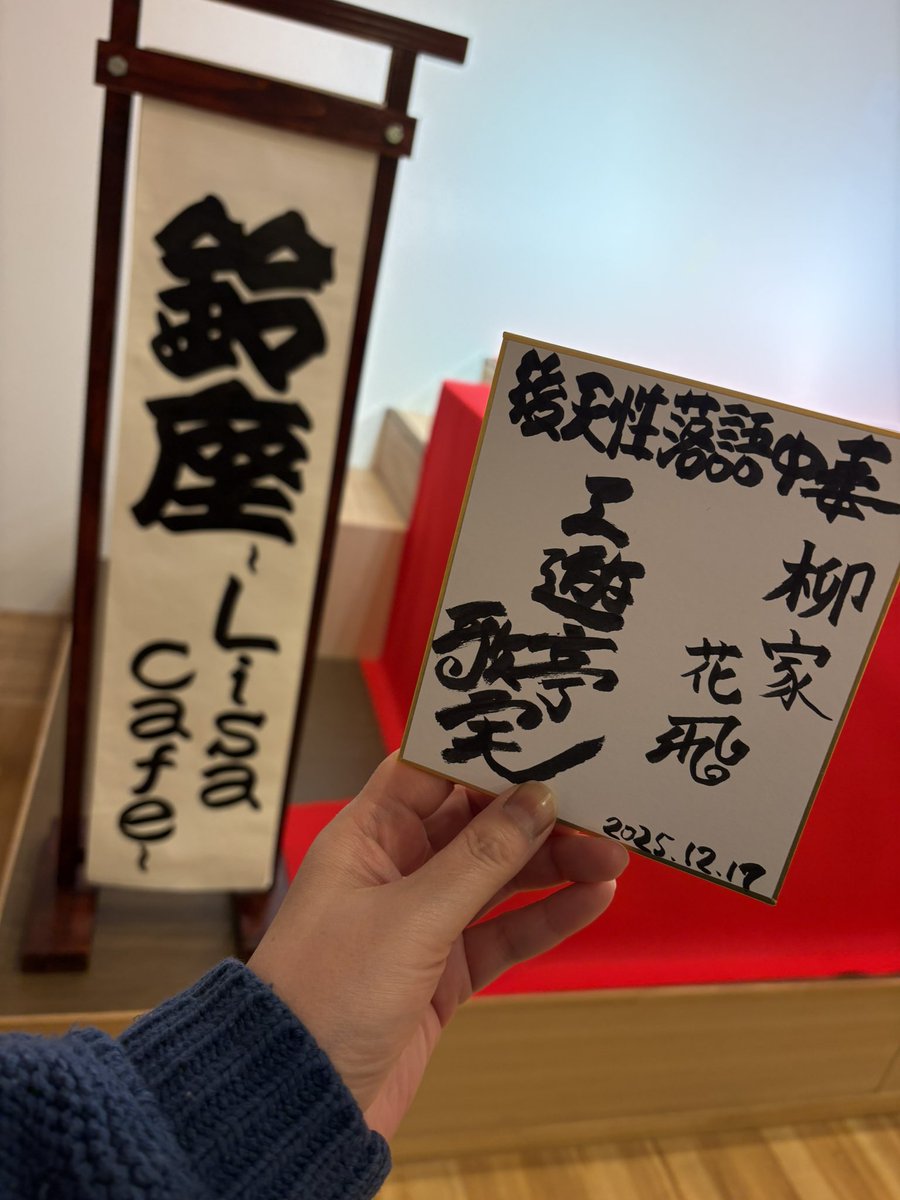 鈴座
~Lisa
cafe~
後天性落語中毒
柳家
花飛
工遊亭
歌実
2025.12.17